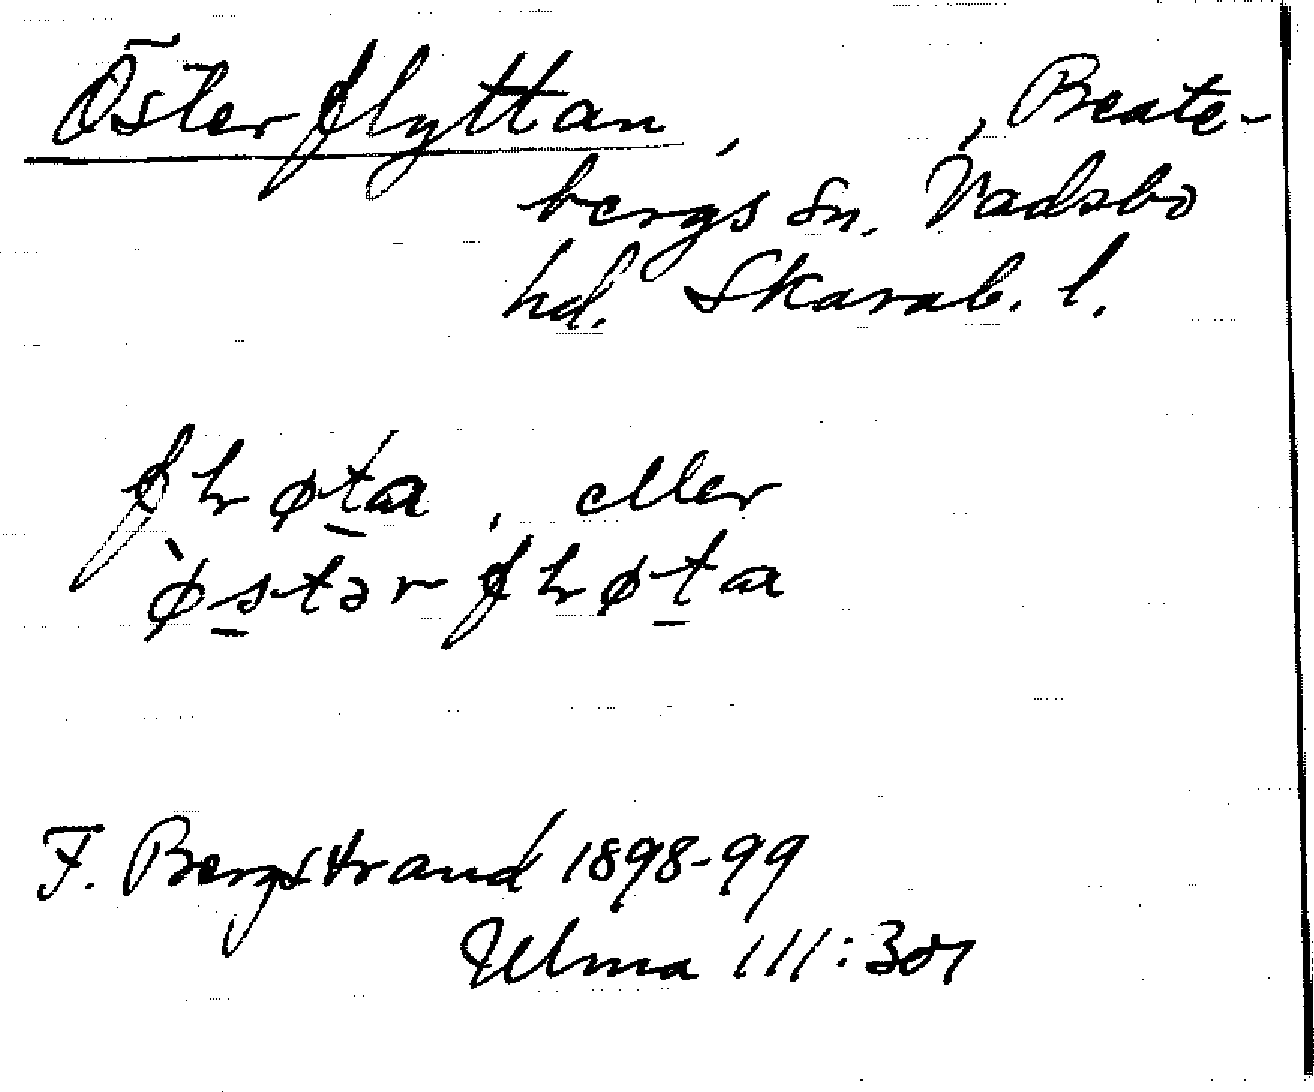 Österflyttan, , Beate-
bergs sn. Vadsbo
hd. Skarab. l.
fhøta, eller
østərfhøta
F. Bergstrand 1898-99
Ulma 111:301